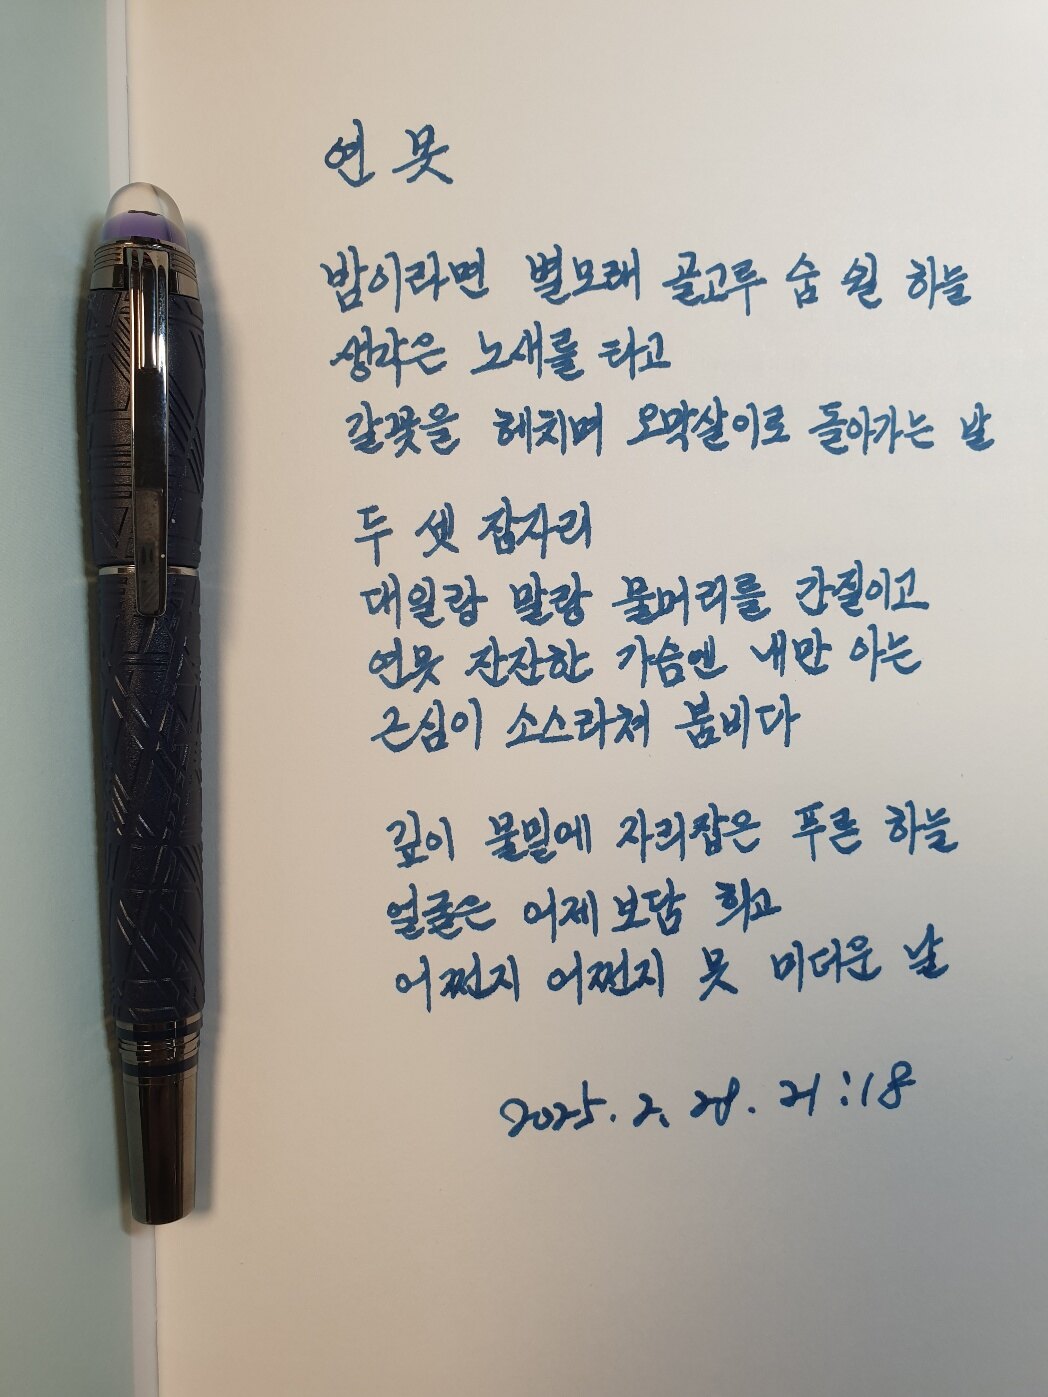 연못
밤이라면 별모래 골고루 숨 쉴 하늘
생각은 노새를 타고
갈꽃을 헤치며 오막살이로 돌아가는 날
두 셋 잠자리
대일랑 말랑 물머리를 간질이고
연못 잔잔한 가슴엔 내만 아는
근심이 소스라쳐 붐비다
깊이 물밑에 자리잡은 푸른 하늘
얼굴은 어제 보담 희고
어쩐지 어쩐지 못 미더운 날
2025. 2. 28. 21:18